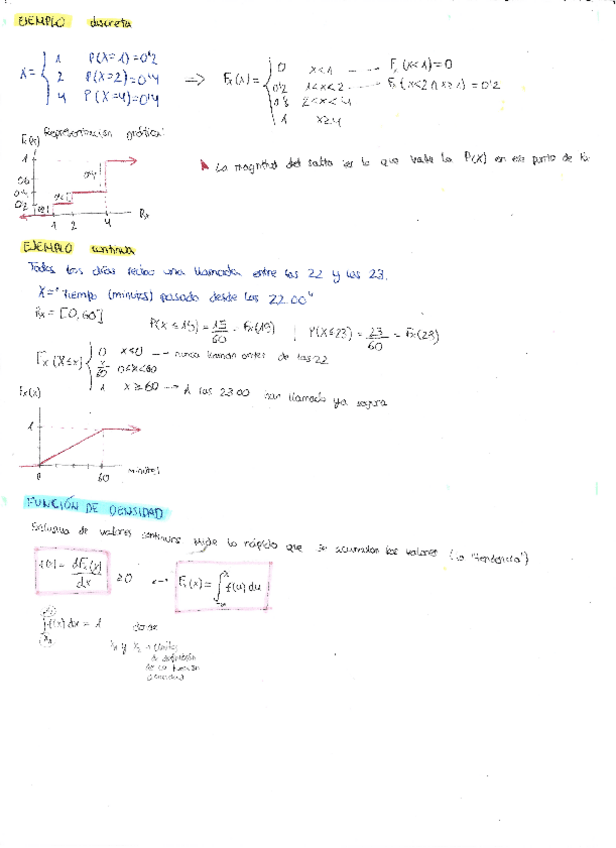 EJEMPLO discreta
X = { 1 P(X=1)=0'2
2 P(X=2)=0'4
4 P(X=4)=0'4
⟹ Fx(x) = { 0 x<1 --- Fx(x<1)=0
0'2 1<x<2 --- Fx(x<2 ∩ x≥1) = 0'2
2<x<4
1 x≥4
Representación gráfica:
Fx(x)
1
0'6
0'4
0'2
1 2 4 Rx
La magnitud del salto es lo que vale la P(X) en ese punto de Rx
EJEMPLO continua
Todos los días recibo una llamada entre las 22 y las 23.
X = "Tiempo (minutos) pasado desde las 22.00"
Rx = [0, 60]
P(X ≤ 15) = 15/60 = Fx(15) | P(X ≤ 23) = 23/60 = Fx(23)
Fx(X≤x) { 0 x<0 --- nunca llaman antes de las 22
x/60 0≤x<60
1 x≥60 --- A las 23.00 han llamado ya segura
Fx(x)
1
0 60 minutos
FUNCIÓN DE DENSIDAD
Exclusiva de valores continuos. Mide lo rápido que se acumulan los valores (la "tendencia")
f(x) = dFx(x)/dx ≥0 ⟷ Fx(x) = ∫ f(u) du
∫ f(x) dx = 1 donde
de su función
densidad